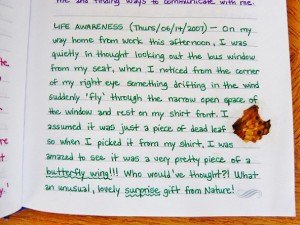 me and finding ways to communicate with me.
LIFE AWARENESS (Thurs/06/14/2007) – On my
way home from work this afternoon, I was
quietly in thought looking out the bus window
from my seat, when I noticed from the corner
of my right eye something drifting in the wind
suddenly 'fly' through the narrow open space of
the window and rest on my shirt front. I
assumed it was just a piece of dead leaf
so when I picked it from my shirt, I was
amazed to see it was a very pretty piece of a
butterfly wing!!! Who would've thought?! What
an unusual, lovely surprise gift from Nature!